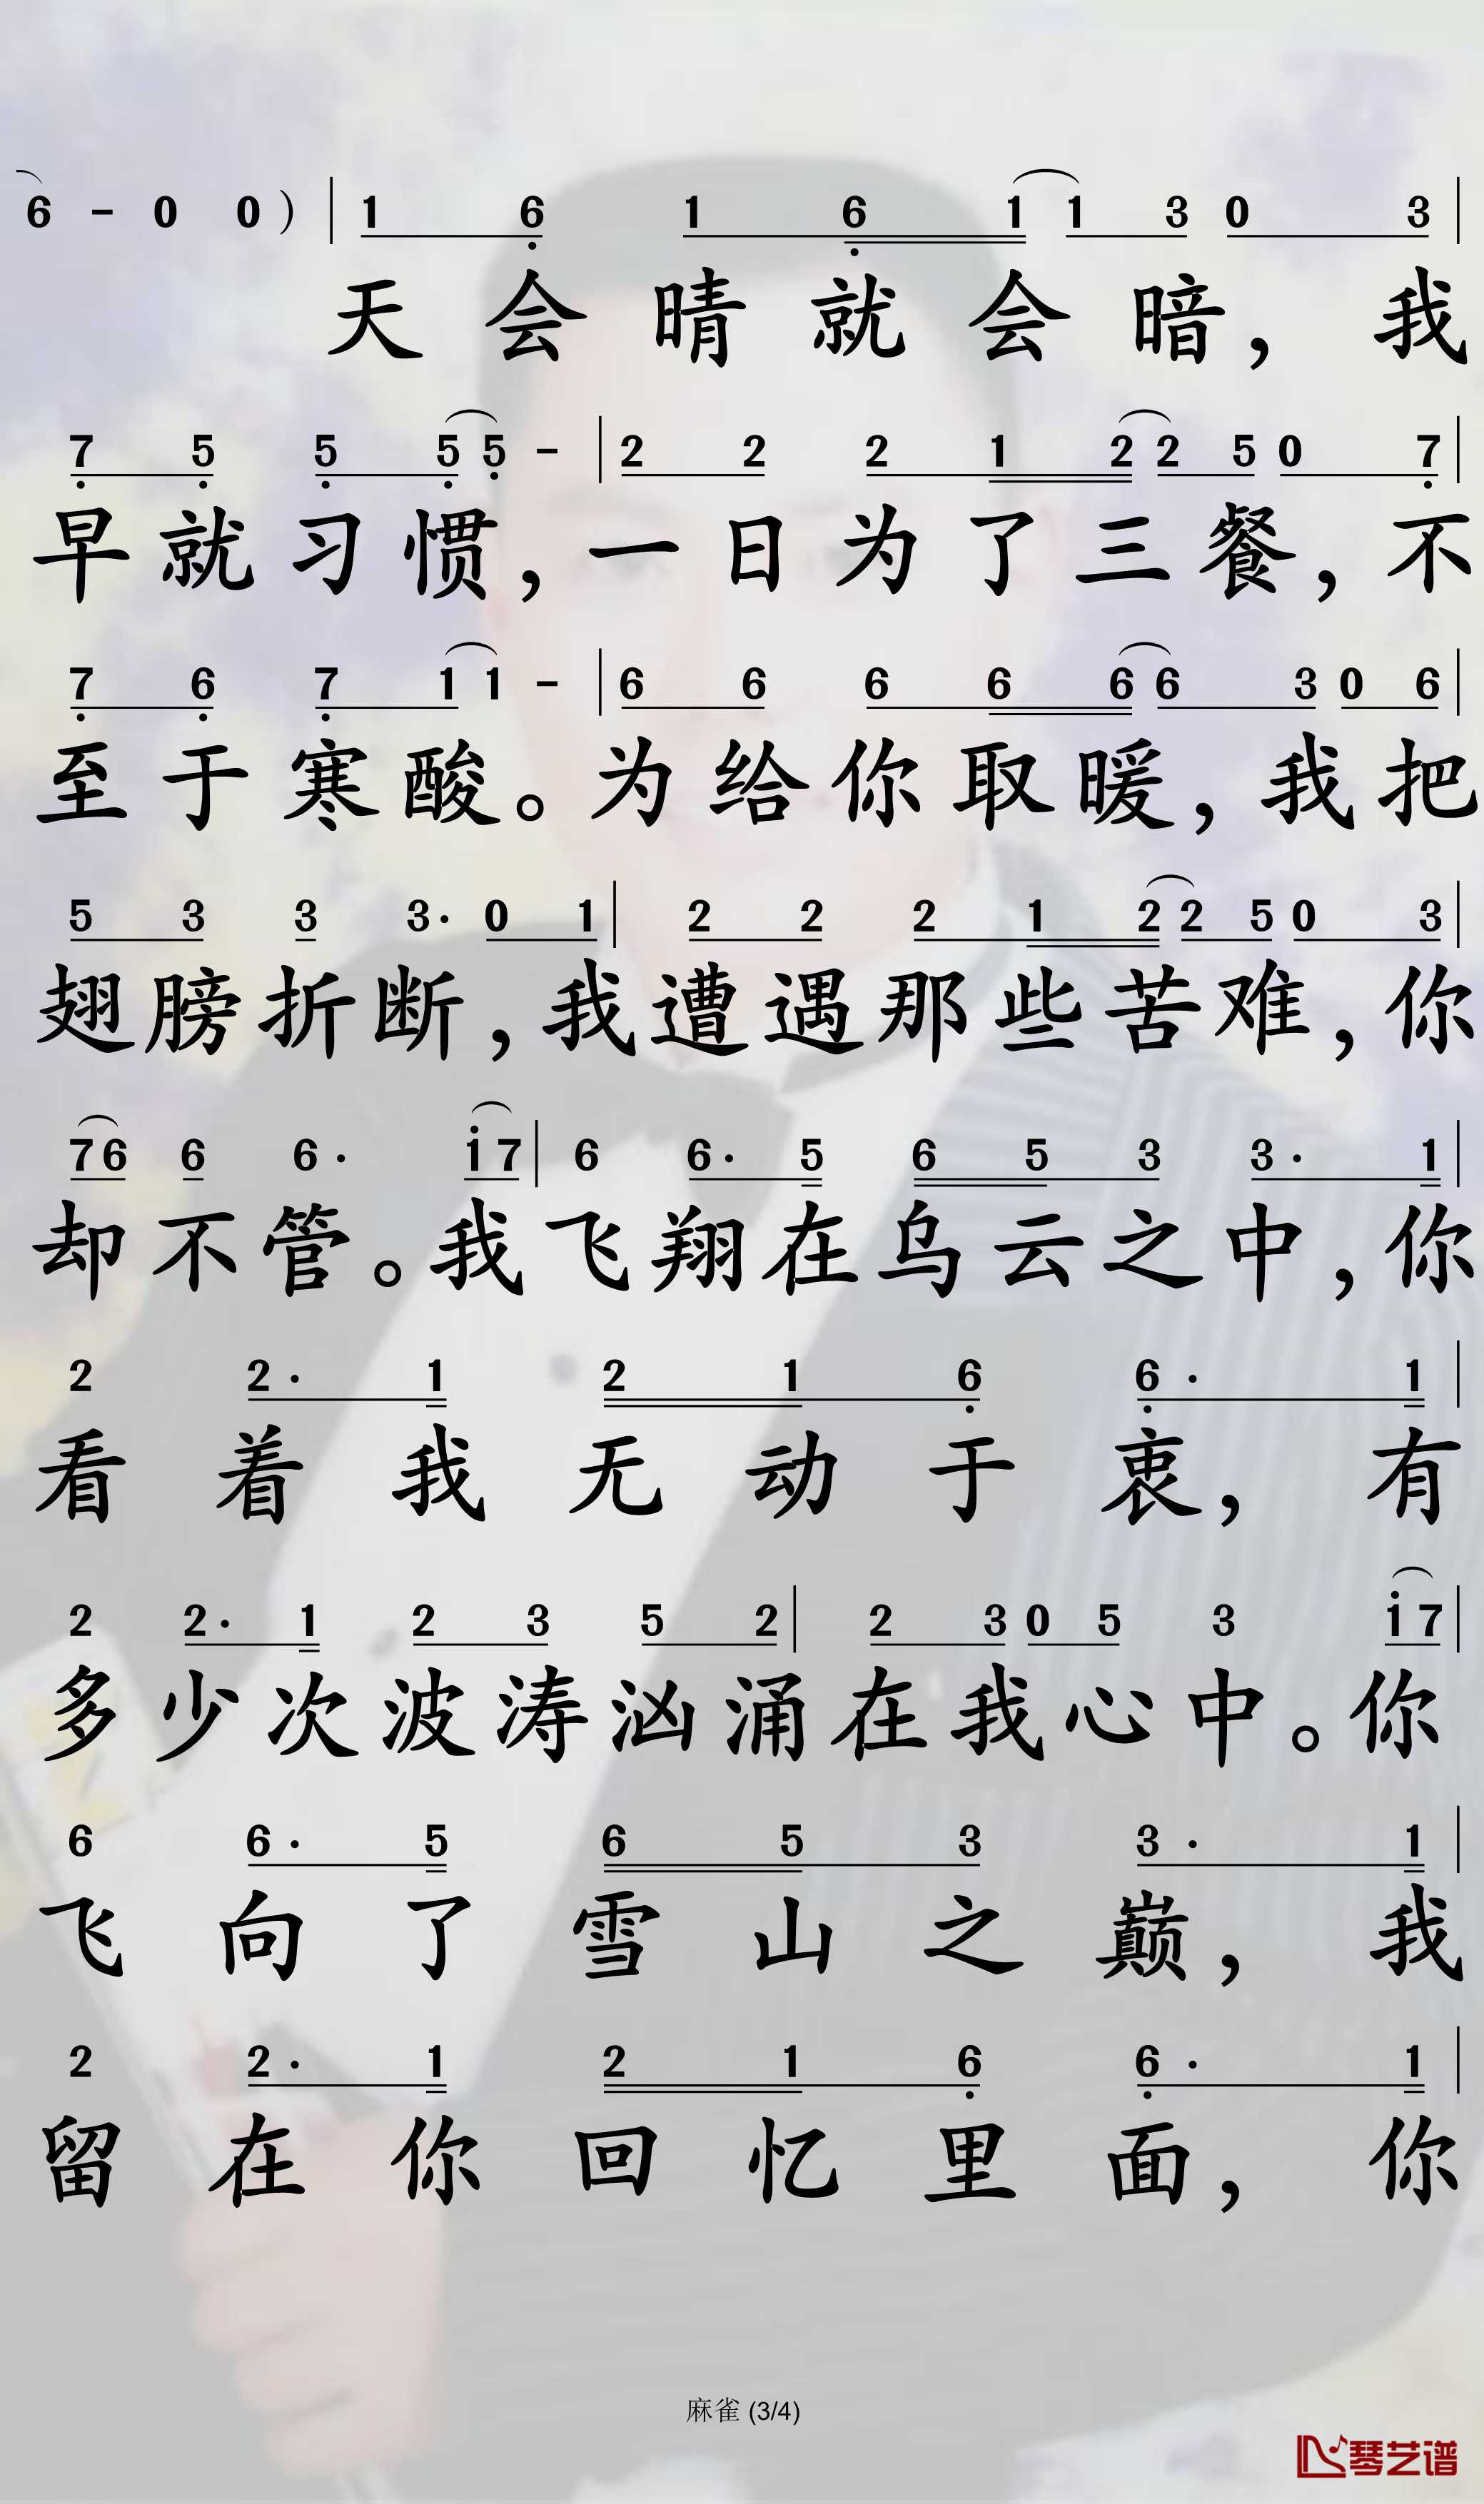 6 - 0 0 ) | 1 6 1 6 1 1 3 0 3 |
天会晴就会暗，我
7 5 5 5 5 - | 2 2 2 1 2 2 5 0 7 |
早就习惯，一日为了三餐，不
7 6 7 1 1 - | 6 6 6 6 6 6 3 0 6 |
至于寒酸。为给你取暖，我把
5 3 3 3· 0 1 | 2 2 2 1 2 2 5 0 3 |
翅膀折断，我遭遇那些苦难，你
7 6 6 6· i 7 | 6 6· 5 6 5 3 3· 1 |
却不管。我飞翔在乌云之中，你
2 2· 1 2 1 6 6· 1 |
看着我无动于衷，有
2 2· 1 2 3 5 2 | 2 3 0 5 3 i 7 |
多少次波涛汹涌在我心中。你
6 6· 5 6 5 3 3· 1 |
飞向了雪山之巅，我
2 2· 1 2 1 6 6· 1 |
留在你回忆里面，你
麻雀 (3/4)
琴艺谱